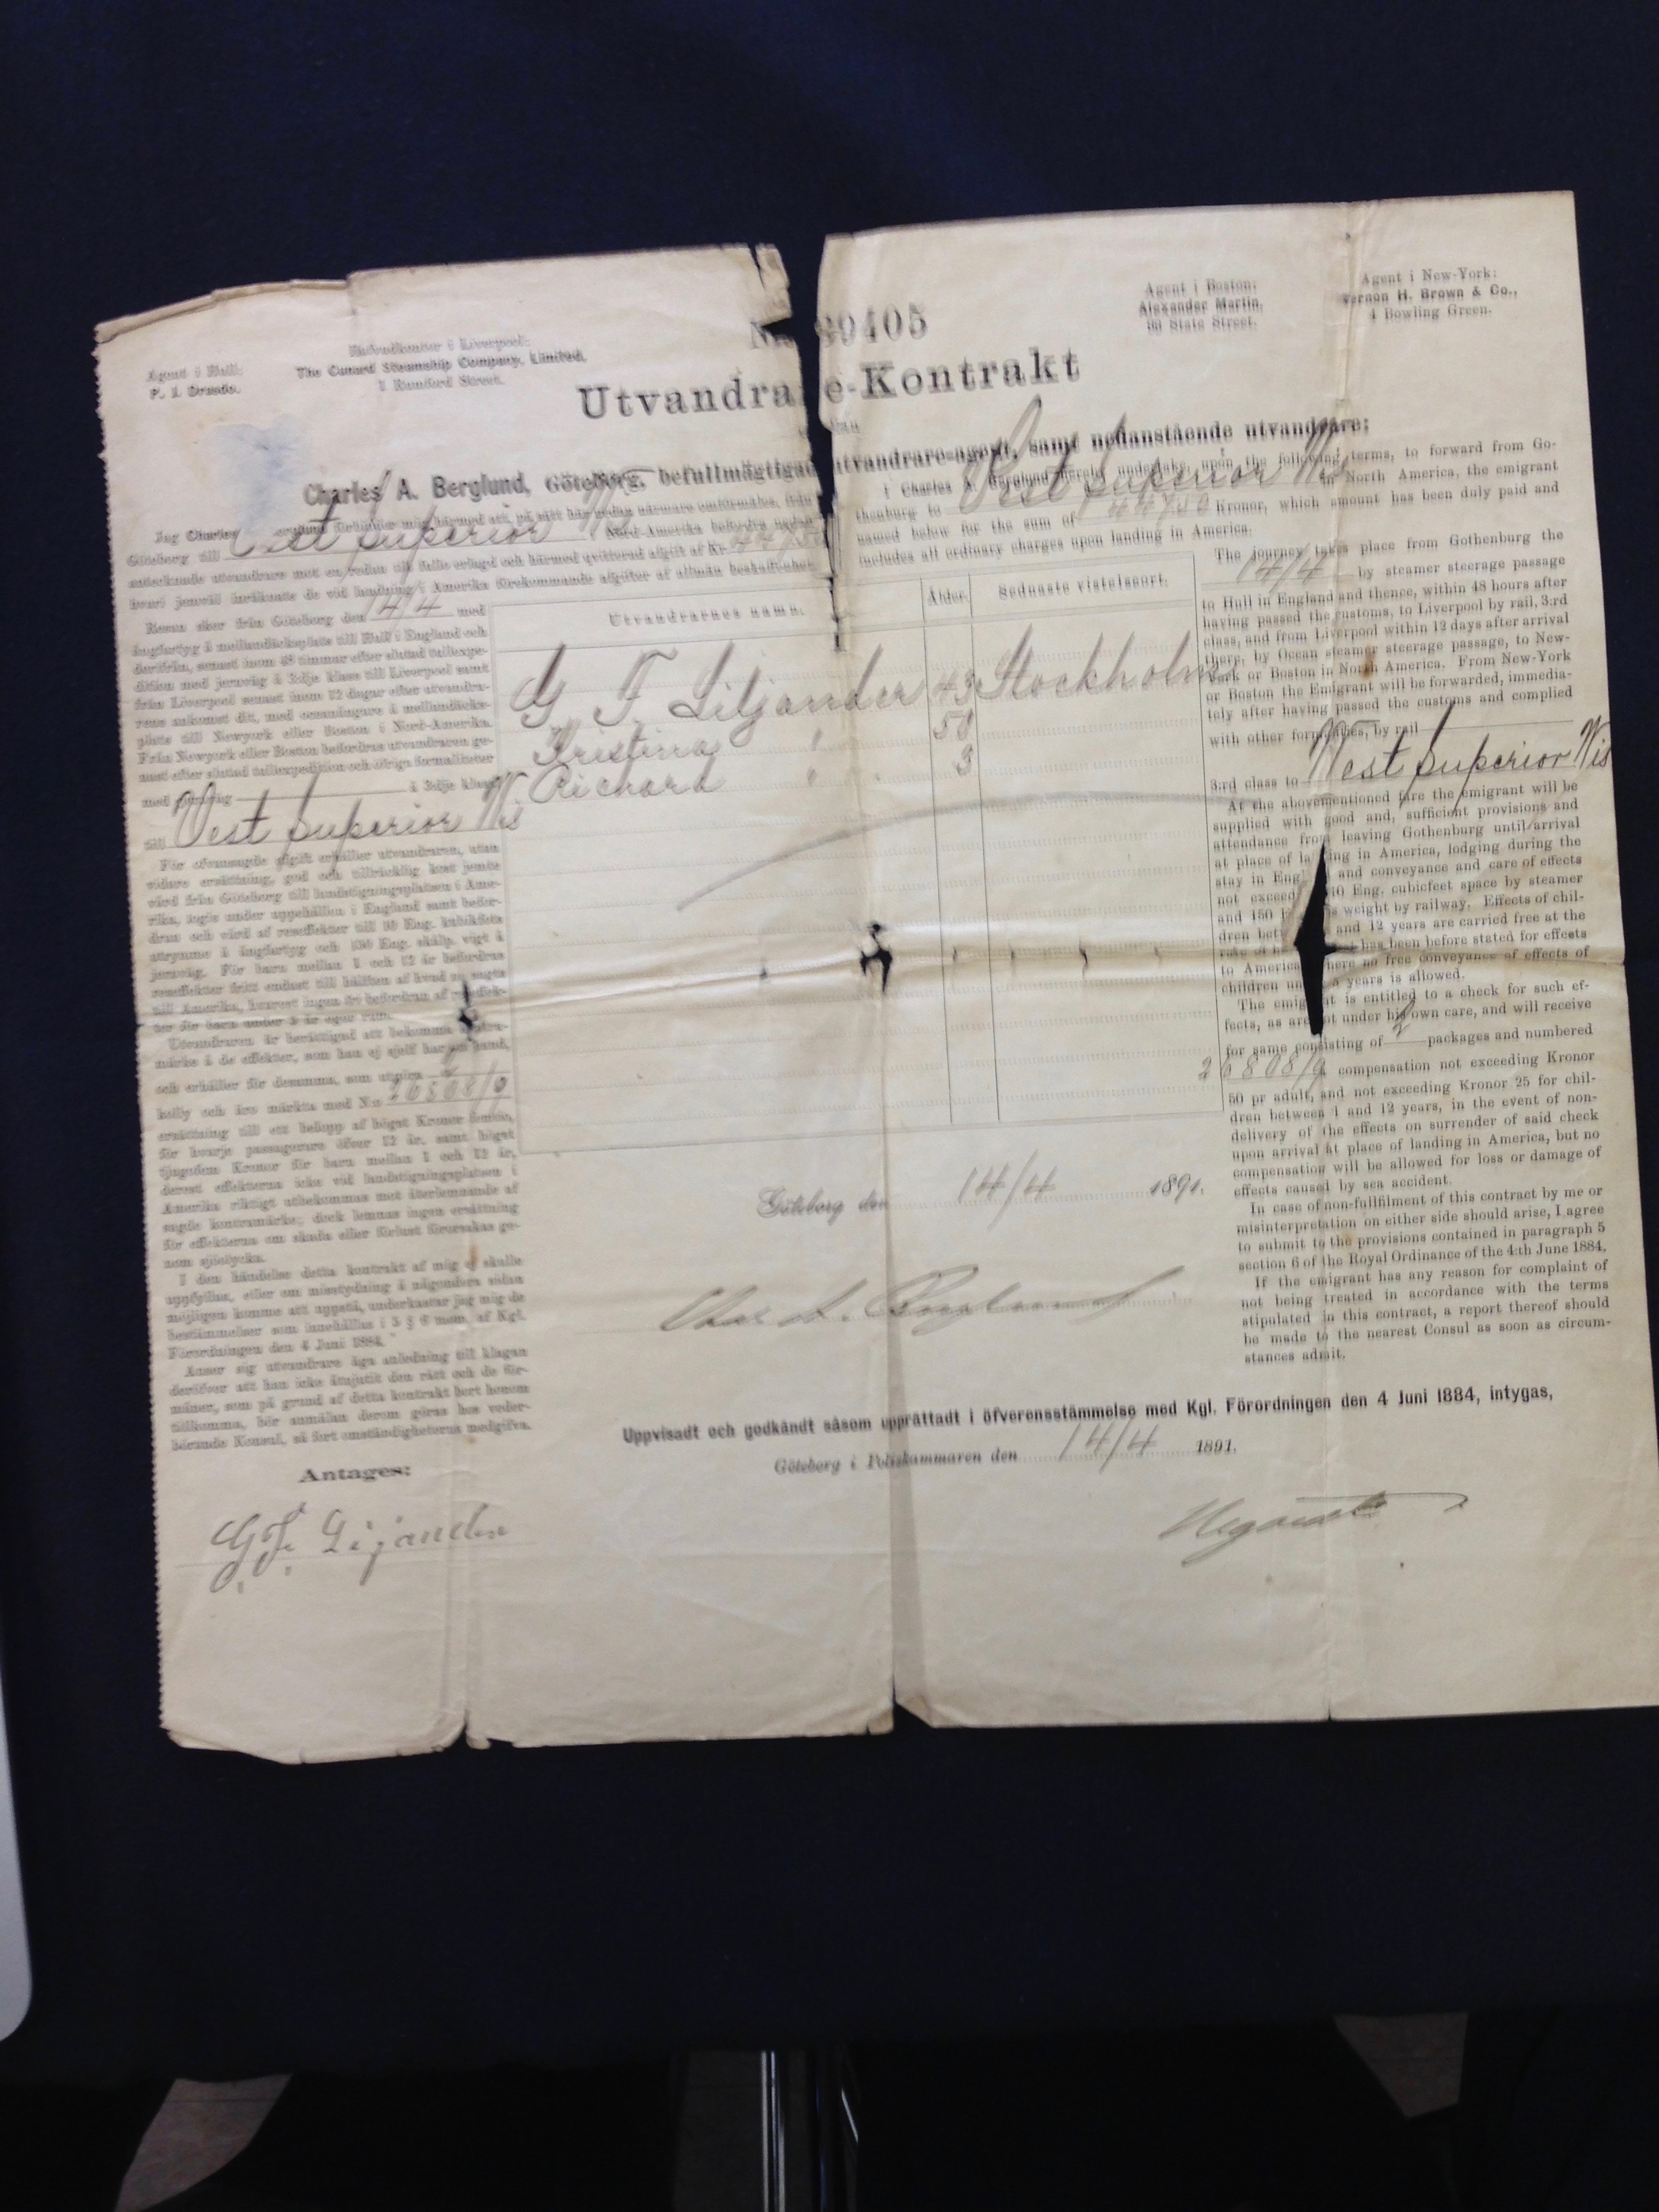 Agent i Hull:
P. J. Drasdo.
Hufvudkontor i Liverpool:
The Cunard Steamship Company, Limited,
1 Rumford Street.
Agent i Boston:
Alexander Martin,
99 State Street.
Agent i New-York:
Vernon H. Brown & Co.,
4 Bowling Green.
0405
Utvandra e-Kontrakt
Charles A. Berglund, Göteborg, befullmägtigad utvandrare-agent, samt nedanstående utvandrare:
Jag Charles förbinder mig härmed att, på sätt här nedan närmare omförmäles, från
Göteborg till West Superior Wis i Nord-Amerika befordra nedan
antecknade utvandrare mot en redan till fullo erlagd och härmed qvitterad afgift af Kr. 447 50
hvari jemväl inräknats de vid landning i Amerika förekommande afgifter af allmän beskaffenhet.
Resan sker från Göteborg den 14/4 med
ångfartyg å mellandäcksplats till Hull i England och
derifrån, senast inom 48 timmar efter slutad tullexpe-
dition med jernväg å 3:dje klass till Liverpool samt
från Liverpool senast inom 12 dagar efter utvandra-
rens ankomst dit, med oceanångare å mellandäcks-
plats till Newyork eller Boston i Nord-Amerika.
Från Newyork eller Boston befordras utvandraren ge-
nast efter slutad tullexpedition och öfriga formaliteter
med jernväg å 3:dje klass
till West Superior Wis
För ofvansagde afgift erhåller utvandraren, utan
vidare ersättning, god och tillräcklig kost jemte
vård från Göteborg till landstigningsplatsen i Ame-
rika, logis under uppehållen i England samt befor-
dran och vård af reseffekter till 10 Eng. kubikfots
utrymme å ångfartyg och 150 Eng. skålp. vigt å
jernväg. För barn mellan 1 och 12 år befordras
reseffekter fritt endast till hälften af hvad nu sagts
till Amerika, hvarest ingen fri befordran af reseffek-
ter för barn under 5 år eger rum.
Utvandraren är berättigad att bekomma kontra-
märke å de effekter, som han ej sjelf har om hand,
och erhåller för desamma, som utgöra 2
kolly och äro märkta med N:o 26808/9
ersättning till ett belopp af högst Kronor femtio,
för hvarje passagerare öfver 12 år, samt högst
tjugofem Kronor för barn mellan 1 och 12 år,
derest effekterna icke vid landstigningsplatsen i
Amerika riktigt utbekommas mot återlemnande af
sagde kontramärke; dock lemnas ingen ersättning
för effekterna om skada eller förlust förorsakas ge-
nom sjöolycka.
I den händelse detta kontrakt af mig ej skulle
uppfyllas, eller om misstydning å någondera sidan
möjligen komme att uppstå, underkastar jag mig de
bestämmelser som innehållas i 5 § 6 mom. af Kgl.
Förordningen den 4 Juni 1884.
Anser sig utvandrare äga anledning till klagan
deröfver att han icke åtnjutit den rätt och de för-
måner, som på grund af detta kontrakt bort honom
tillkomma, bör anmälan derom göras hos veder-
börande Konsul, så fort omständigheterna medgifva.
Antages:
G. F. Lijander
Utvandrarnes namn. Ålder. Sednaste vistelseort.
G F Liljander 43 Stockholm
Kristina " 50
Richard " 3
Göteborg den 14/4 1891.
Chas A. Berglund
Uppvisadt och godkändt såsom upprättadt i öfverensstämmelse med Kgl. Förordningen den 4 Juni 1884, intygas,
Göteborg i Poliskammaren den 14/4 1891.
I Charles A. Berglund hereby undertake, upon the following terms, to forward from Go-
thenburg to West Superior Wis in North America, the emigrant
named below for the sum of 447 50 Kronor, which amount has been duly paid and
includes all ordinary charges upon landing in America.
The journey takes place from Gothenburg the
14/4 by steamer steerage passage
to Hull in England and thence, within 48 hours after
having passed the customs, to Liverpool by rail, 3:rd
class, and from Liverpool within 12 days after arrival
there, by Ocean steamer steerage passage, to New-
York or Boston in North America. From New-York
or Boston the Emigrant will be forwarded, immedia-
tely after having passed the customs and complied
with other formalities, by rail
3:rd class to West Superior Wis
At the abovementioned fare the emigrant will be
supplied with good and, sufficient provisions and
attendance from leaving Gothenburg until arrival
at place of la ing in America, lodging during the
stay in Engl and conveyance and care of effects
not exceed 10 Eng. cubicfeet space by steamer
and 150 s weight by railway. Effects of chil-
dren bet and 12 years are carried free at the
rate of h has been before stated for effects
to America here no free conveyance of effects of
children un years is allowed.
The emig nt is entitled to a check for such ef-
fects, as are not under his own care, and will receive
for same consisting of 2 packages and numbered
26808/9 a compensation not exceeding Kronor
50 pr adult, and not exceeding Kronor 25 for chil-
dren between 1 and 12 years, in the event of non-
delivery of the effects on surrender of said check
upon arrival at place of landing in America, but no
compensation will be allowed for loss or damage of
effects caused by sea accident.
In case of non-fullfilment of this contract by me or
misinterpretation on either side should arise, I agree
to submit to the provisions contained in paragraph 5
section 6 of the Royal Ordinance of the 4:th June 1884.
If the emigrant has any reason for complaint of
not being treated in accordance with the terms
stipulated in this contract, a report thereof should
be made to the nearest Consul as soon as circum-
stances admit.